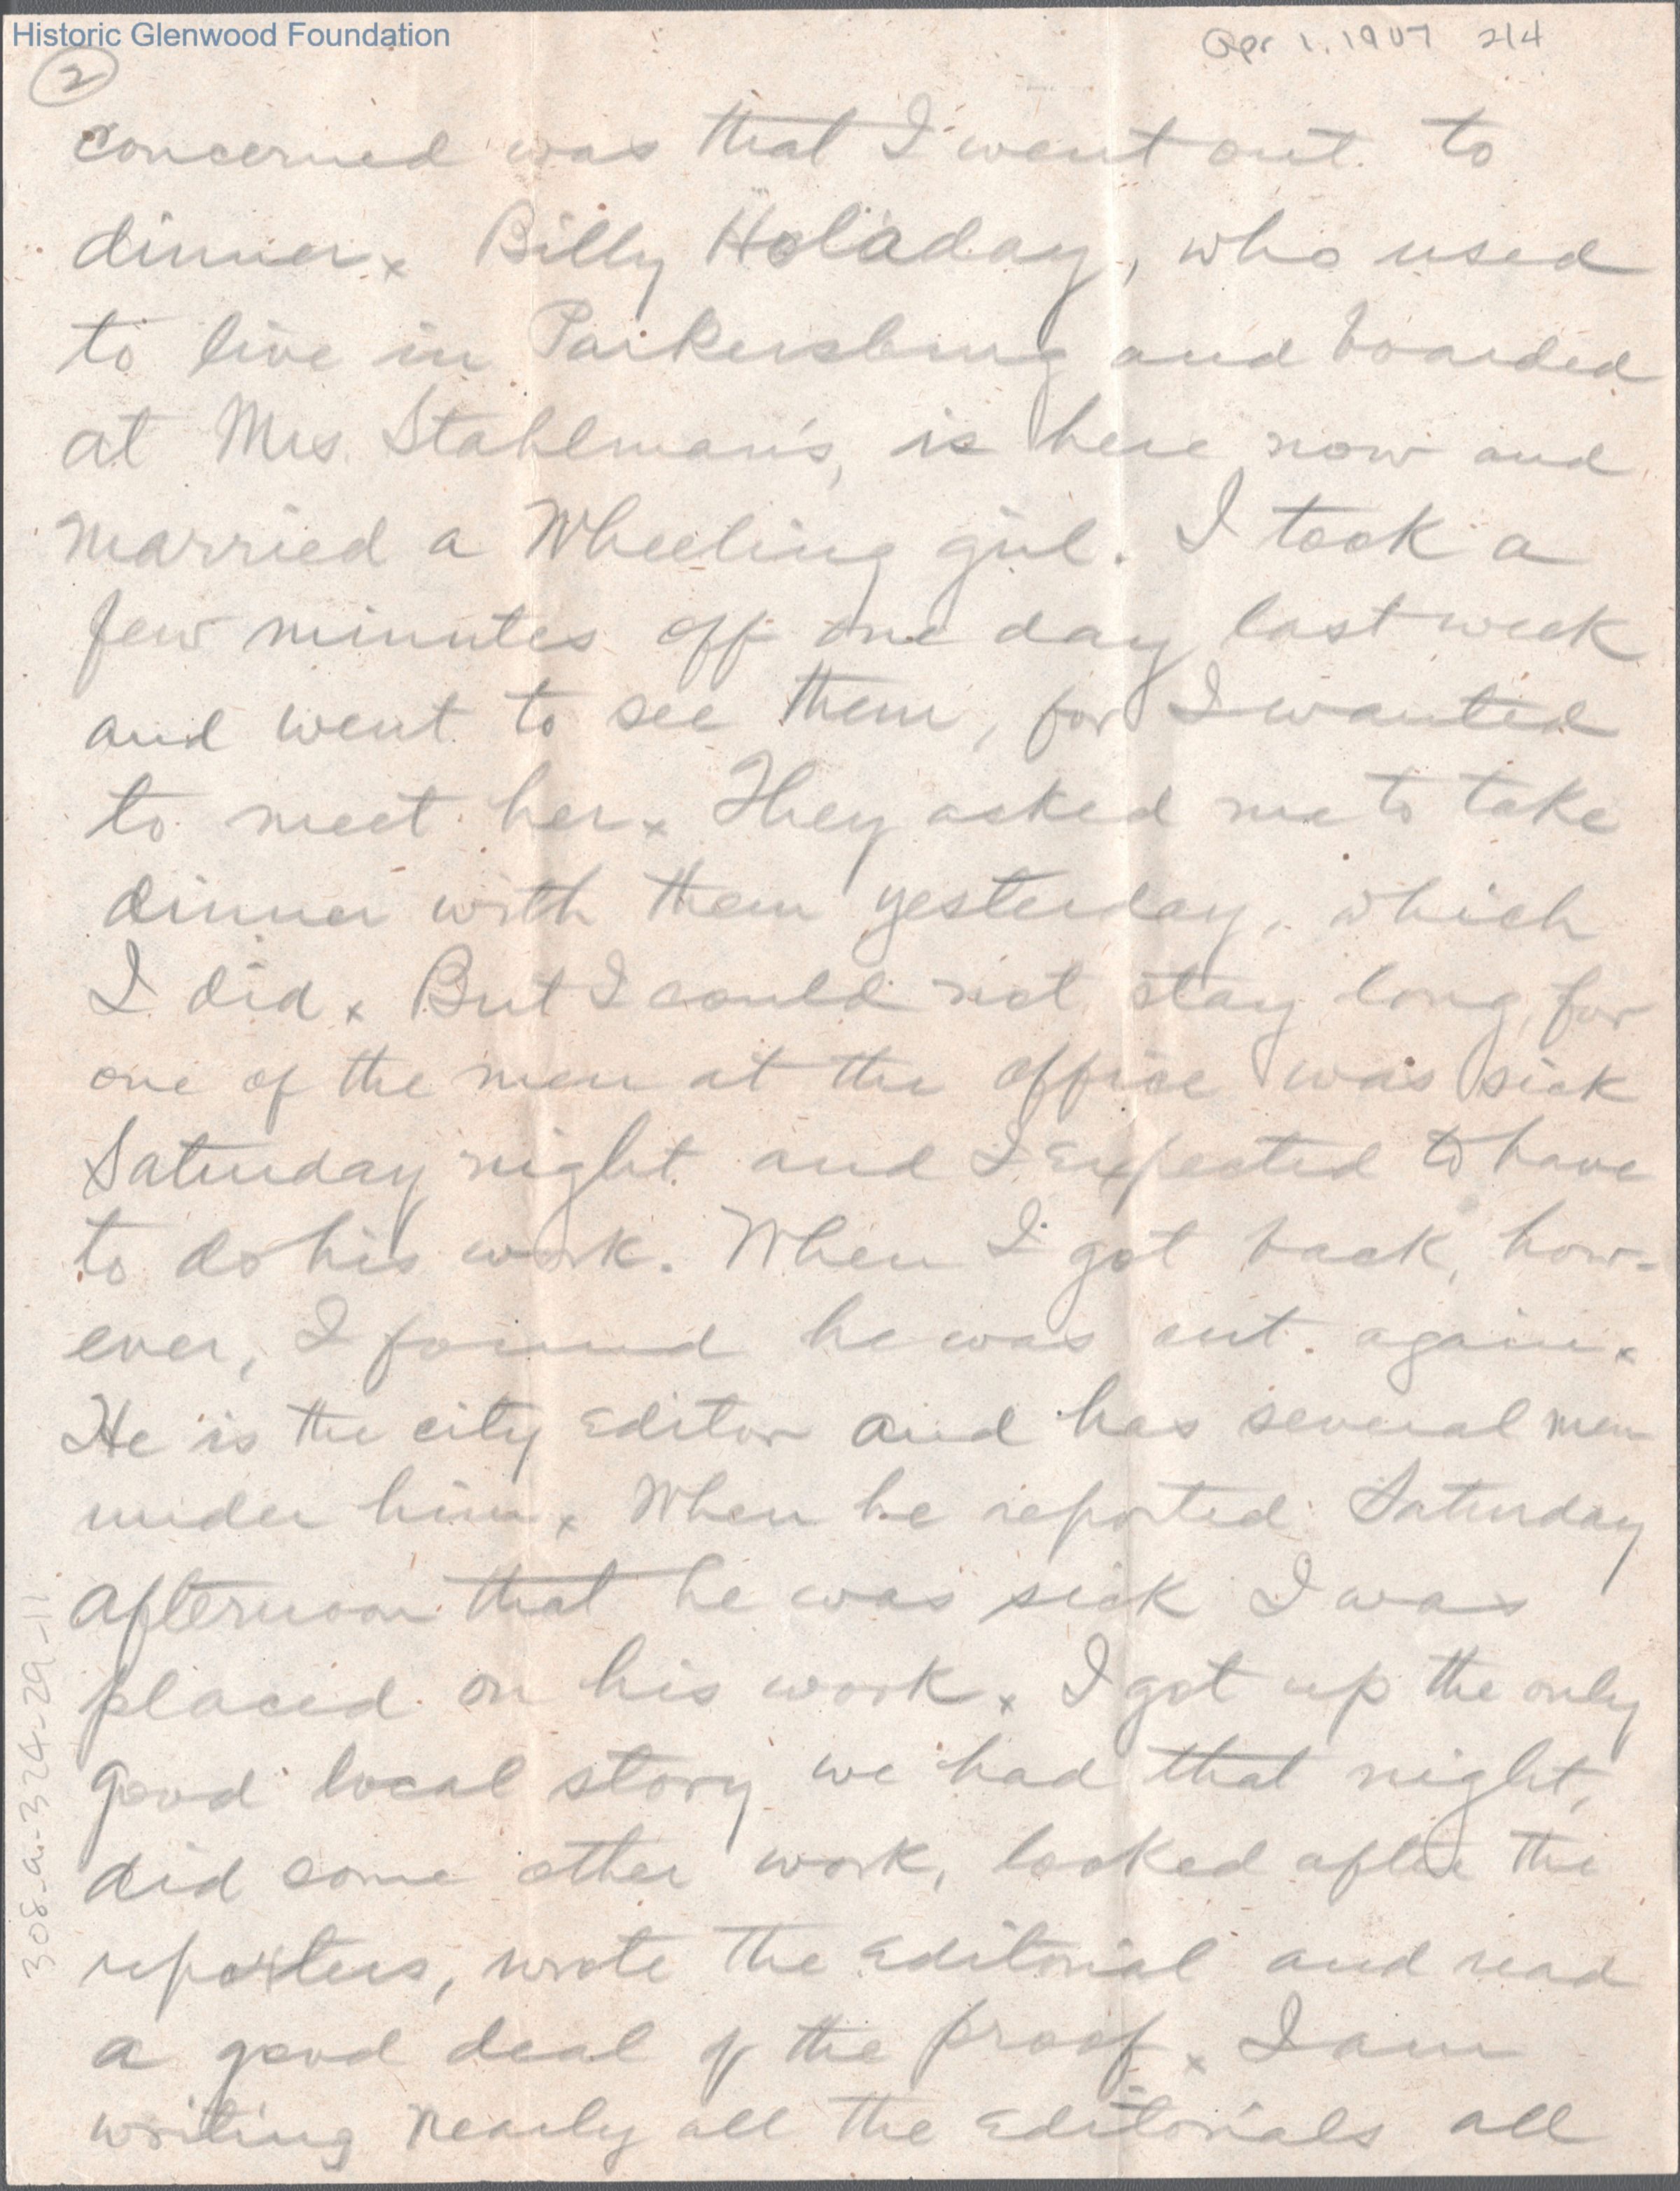 Historic Glenwood Foundation
Apr 1, 1907 2/4
2
concerned was that I went out to
dinner x Billy Holaday, who used
to live in Parkersburg and boarded
at Mrs. Stahlman's, is here now and
married a Wheeling girl. I took a
few minutes off one day last week
and went to see them, for I wanted
to meet her x They asked me to take
dinner with them yesterday, which
I did x But I could not stay long, for
one of the men at the office was sick
Saturday night and I expected to have
to do his work. When I got back, how-
ever, I found he was out again x
He is the city editor and has several men
under him x When he reported Saturday
afternoon that he was sick I was
placed on his work x I got up the only
good local story we had that night,
did some other work, looked after the
reporters, wrote the editorial and read
a good deal of the proof x I am
writing nearly all the editorials all
308-a-324-29-11